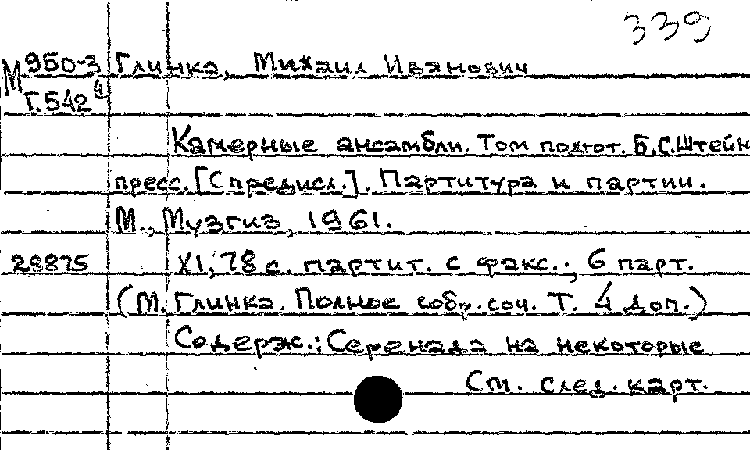 339
М 950-3 Глинка, Михаил Иванович
Г.542
Камерные ансамбли. Том подгот. Б.С.Штейн
пресс. [С предисл.]. Партитура и партии.
М., Музгиз, 1961.
28875 XI, 78 с. партит. с факс.; 6 парт.
(М. Глинка. Полное собр. соч. Т. 4 доп.)
Содерж.: Серенада на некоторые
См. след. карт.